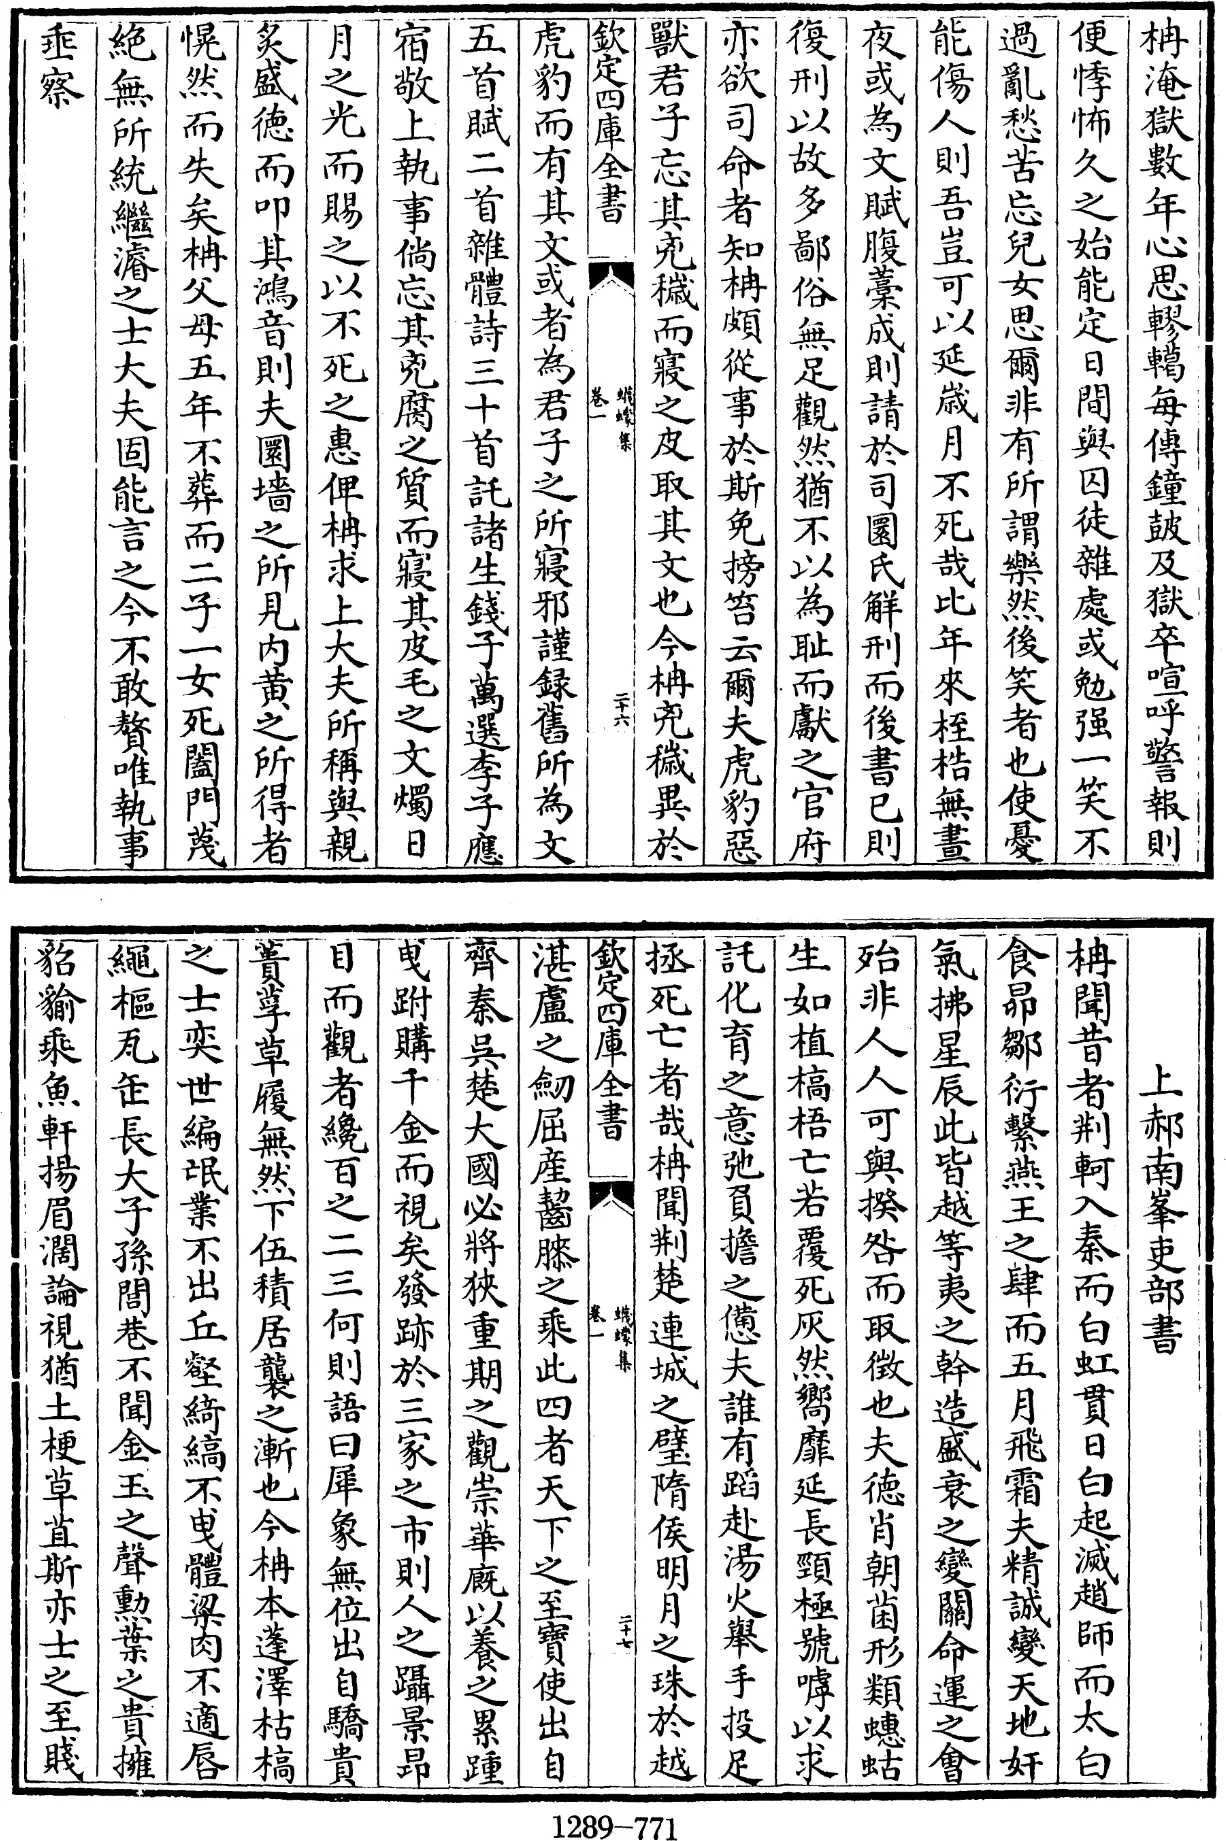 柟淹獄數年心思轇轕每傳鐘鼓及獄卒喧呼警報則
便悸怖久之始能定日間與囚徒雜處或勉强一笑不
過亂愁苦忘兒女思爾非有所謂樂然後笑者也使憂
能傷人則吾豈可以延歲月不死哉比年來桎梏無晝
夜或為文賦腹藁成則請於司圜氏解刑而後書已則
復刑以故多鄙俗無足觀然猶不以為耻而獻之官府
亦欲司命者知柟頗從事於斯免搒笞云爾夫虎豹惡
獸君子忘其兇穢而寢之皮取其文也今柟兇穢異於
欽定四庫全書
蠛蠓集
卷一
二十六
虎豹而有其文或者為君子之所寢邪謹録舊所為文
五首賦二首雜體詩三十首託諸生錢子萬選李子應
宿敬上執事倘忘其兇腐之質而寢其皮毛之文燭日
月之光而賜之以不死之惠俾柟求上大夫所稱與親
炙盛德而叩其鴻音則夫圜墻之所見内黄之所得者
愰然而失矣柟父母五年不葬而二子一女死闔門蔑
絶無所統繼濬之士大夫固能言之今不敢贅唯執事
垂察
上郝南峯吏部書
柟聞昔者荆軻入秦而白虹貫日白起滅趙師而太白
食昴鄒衍繫燕王之肆而五月飛霜夫精誠變天地奸
氣拂星辰此皆越等夷之幹造盛衰之變關命運之會
殆非人人可與揆咎而取徵也夫德肖朝菌形類蟪蛄
生如植槁梧亡若覆死灰然嚮靡延長頸極號嘑以求
託化育之意弛負擔之憊夫誰有蹈赴湯火舉手投足
拯死亡者哉柟聞荆楚連城之璧隋侯明月之珠於越
欽定四庫全書
蠛蠓集
卷一
二十七
湛盧之劒屈産齧膝之乘此四者天下之至寶使出自
齊秦吳楚大國必將狹重期之觀崇華廐以養之累踵
曳跗購千金而視矣發跡於三家之市則人之躡景昂
目而觀者纔百之二三何則語曰犀象無位出自驕貴
蕢莩草履無然下伍積居襲之漸也今柟本蓬澤枯槁
之士奕世編氓業不出丘壑綺縞不曳體粱肉不適唇
繩樞瓦缶長大子孫閭巷不聞金玉之聲勲葉之貴擁
貂貐乘魚軒揚眉濶論視猶土梗草苴斯亦士之至賤
1289-771